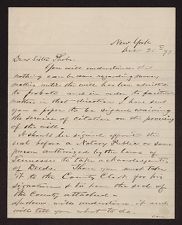 New York
Dec 2nd 97
Dear Sister Phebe
You will understand that
nothing can be done regarding money
matters until the will has been admitted
to probate and in order to facilitate
matters in that direction I have sent
you a paper to be signed waiving
the service of citation on the proving
of the will.
It should be signed opposite the
seal before a Notary Public or some
person authorized by the laws of
Tennessee to take acknowledgements
of Deeds. Then you must take
it to the County Clerk for his
signature & to have the seal of
the County attached.
Andrew will understand it and
will tell you what to do.